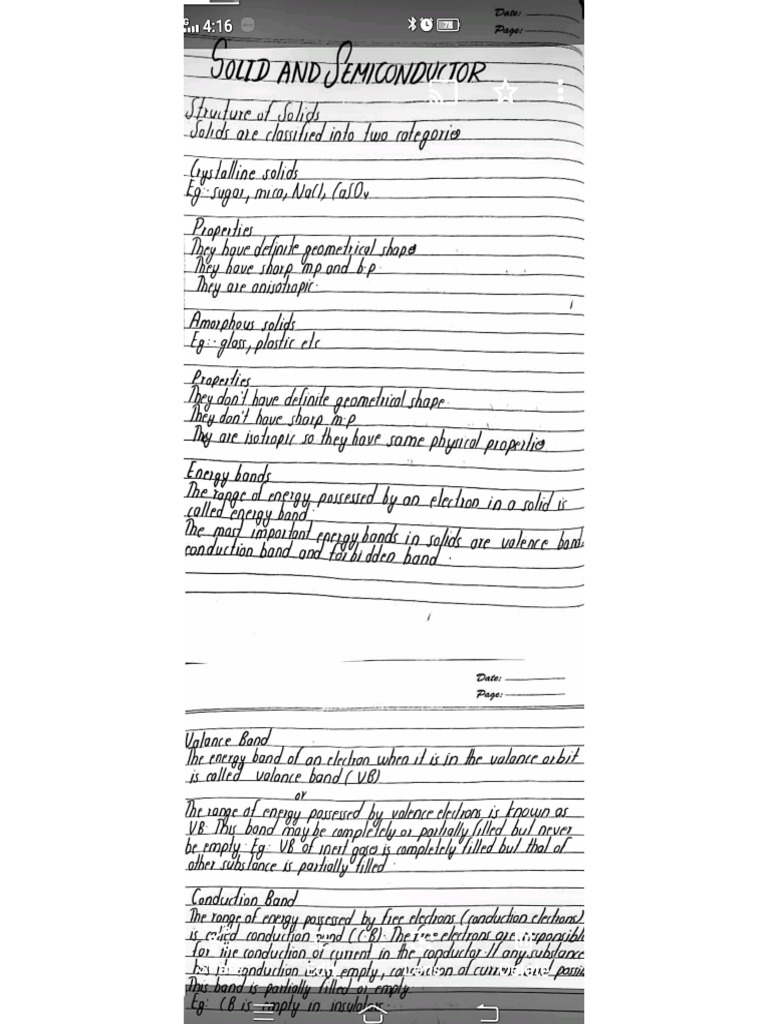 4:16
78
Date:
Page:
SOLID AND SEMICONDUCTOR
Structure of Solids
Solids are classified into two categories
Crystalline solids
Eg:- sugar, mica, NaCl, CaSO₄
Properties
They have definite geometrical shape
They have sharp m.p and b.p.
They are anisotropic.
Amorphous solids
Eg:- glass, plastic etc
Properties
They don't have definite geometrical shape.
They don't have sharp m.p
They are isotropic so they have same physical properties
Energy bands
The range of energy possessed by an electron in a solid is
called energy band.
The most important energy bands in solids are valence band,
conduction band and forbidden band.
Date:
Page:
Valance Band
The energy band of an electron when it is in the valance orbit
is called valance band (VB)
or
The range of energy possessed by valence electrons is known as
VB. This band may be completely or partially filled but never
be empty. Eg: VB of inert gases is completely filled but that of
other substance is partially filled.
Conduction Band
The range of energy possessed by free electrons (conduction electrons)
is called conduction band (C.B). The free electrons are responsible
for the conduction of current in the conductor. If any substance
has conduction band empty, conduction of current not possi
This band is partially filled or empty.
Eg: CB is empty in insulators.